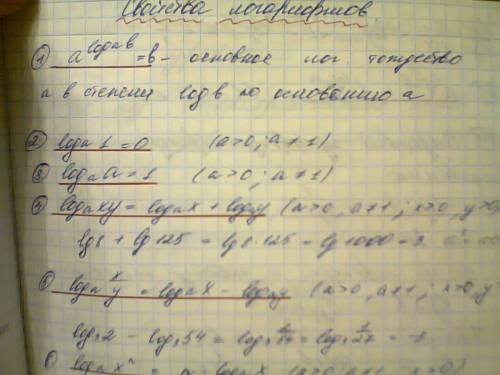 Свойства логарифмов.
① a^(log_a b) = b – основное лог тождество
a в степени log b по основанию a
② log_a 1 = 0 (a>0; a≠1)
③ log_a a = 1 (a>0; a≠1)
④ log_a xy = log_a x + log_a y (a>0, a≠1; x>0, y>0
lg 8 + lg 125 = lg 8·125 = lg 1000 = 3
⑤ log_a x/y = log_a x – log_a y (a>0, a≠1; x>0, y
log₃ 2 – log₃ 54 = log₃ 2/54 = log₃ 1/27 = -3
log_a xⁿ = n log_a x (a>0, a≠1, x>0)